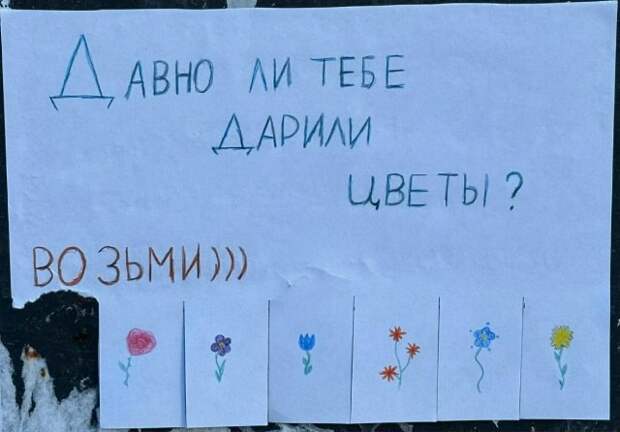 ДАВНО ЛИ ТЕБЕ
ДАРИЛИ
ЦВЕТЫ?
ВОЗЬМИ)))